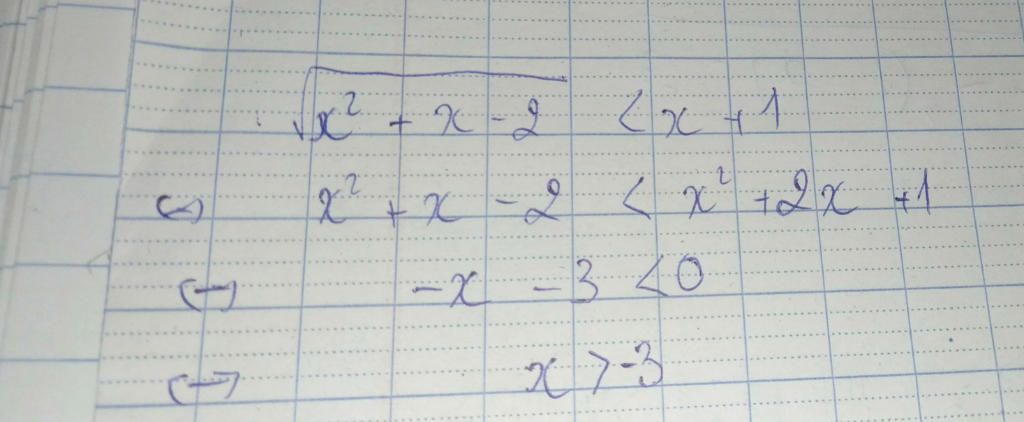 √(x² + x - 2) < x + 1
↔ x² + x - 2 < x² + 2x + 1
↔ -x - 3 < 0
↔ x > -3